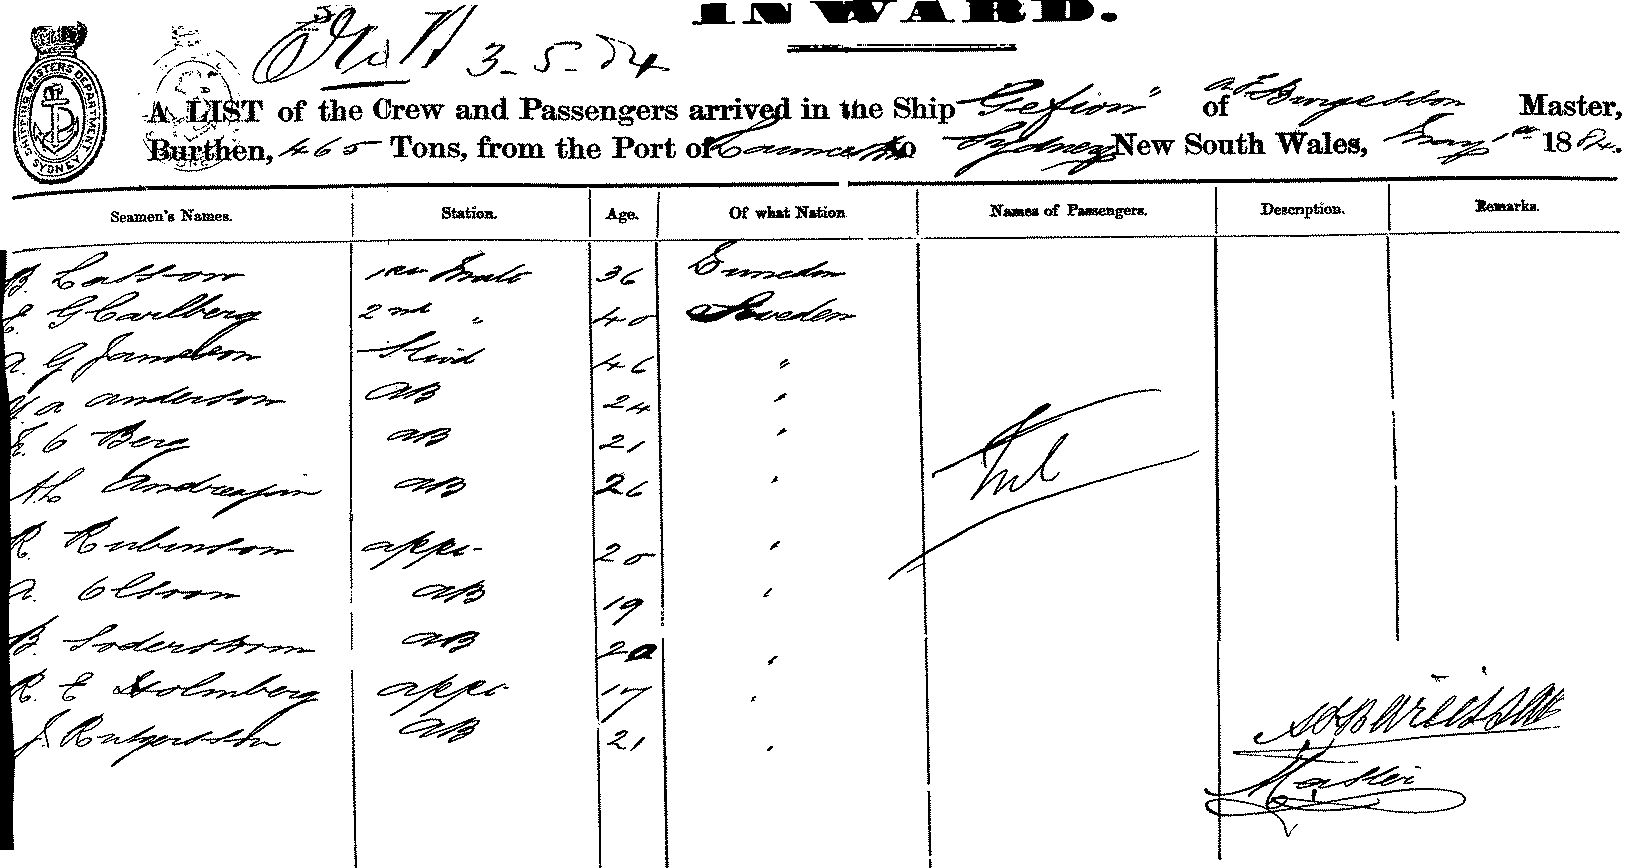 INWARD.
3-5-84
SHIPPING MASTERS DEPARTMENT SYDNEY
A LIST of the Crew and Passengers arrived in the Ship "Gefion" of Master,
Burthen, 465 Tons, from the Port of to Sydney New South Wales, May 1st 1884.
Seamen's Names. Station. Age. Of what Nation Names of Passengers. Description. Remarks.
B. 1st Mate 36 Sweden
E G Carlberg 2nd " 40 Sweden
A. G Stwd 46 "
A Anderson AB 24 "
E. C Berg AB 21 "
AB 26 "
R. Rubenson appr. 20 "
A. Olsson AB 19 "
B. Soderstrom AB 20 "
R. E Holmberg appr. 17 "
J. Rutgersson AB 21 "
Nil
Master